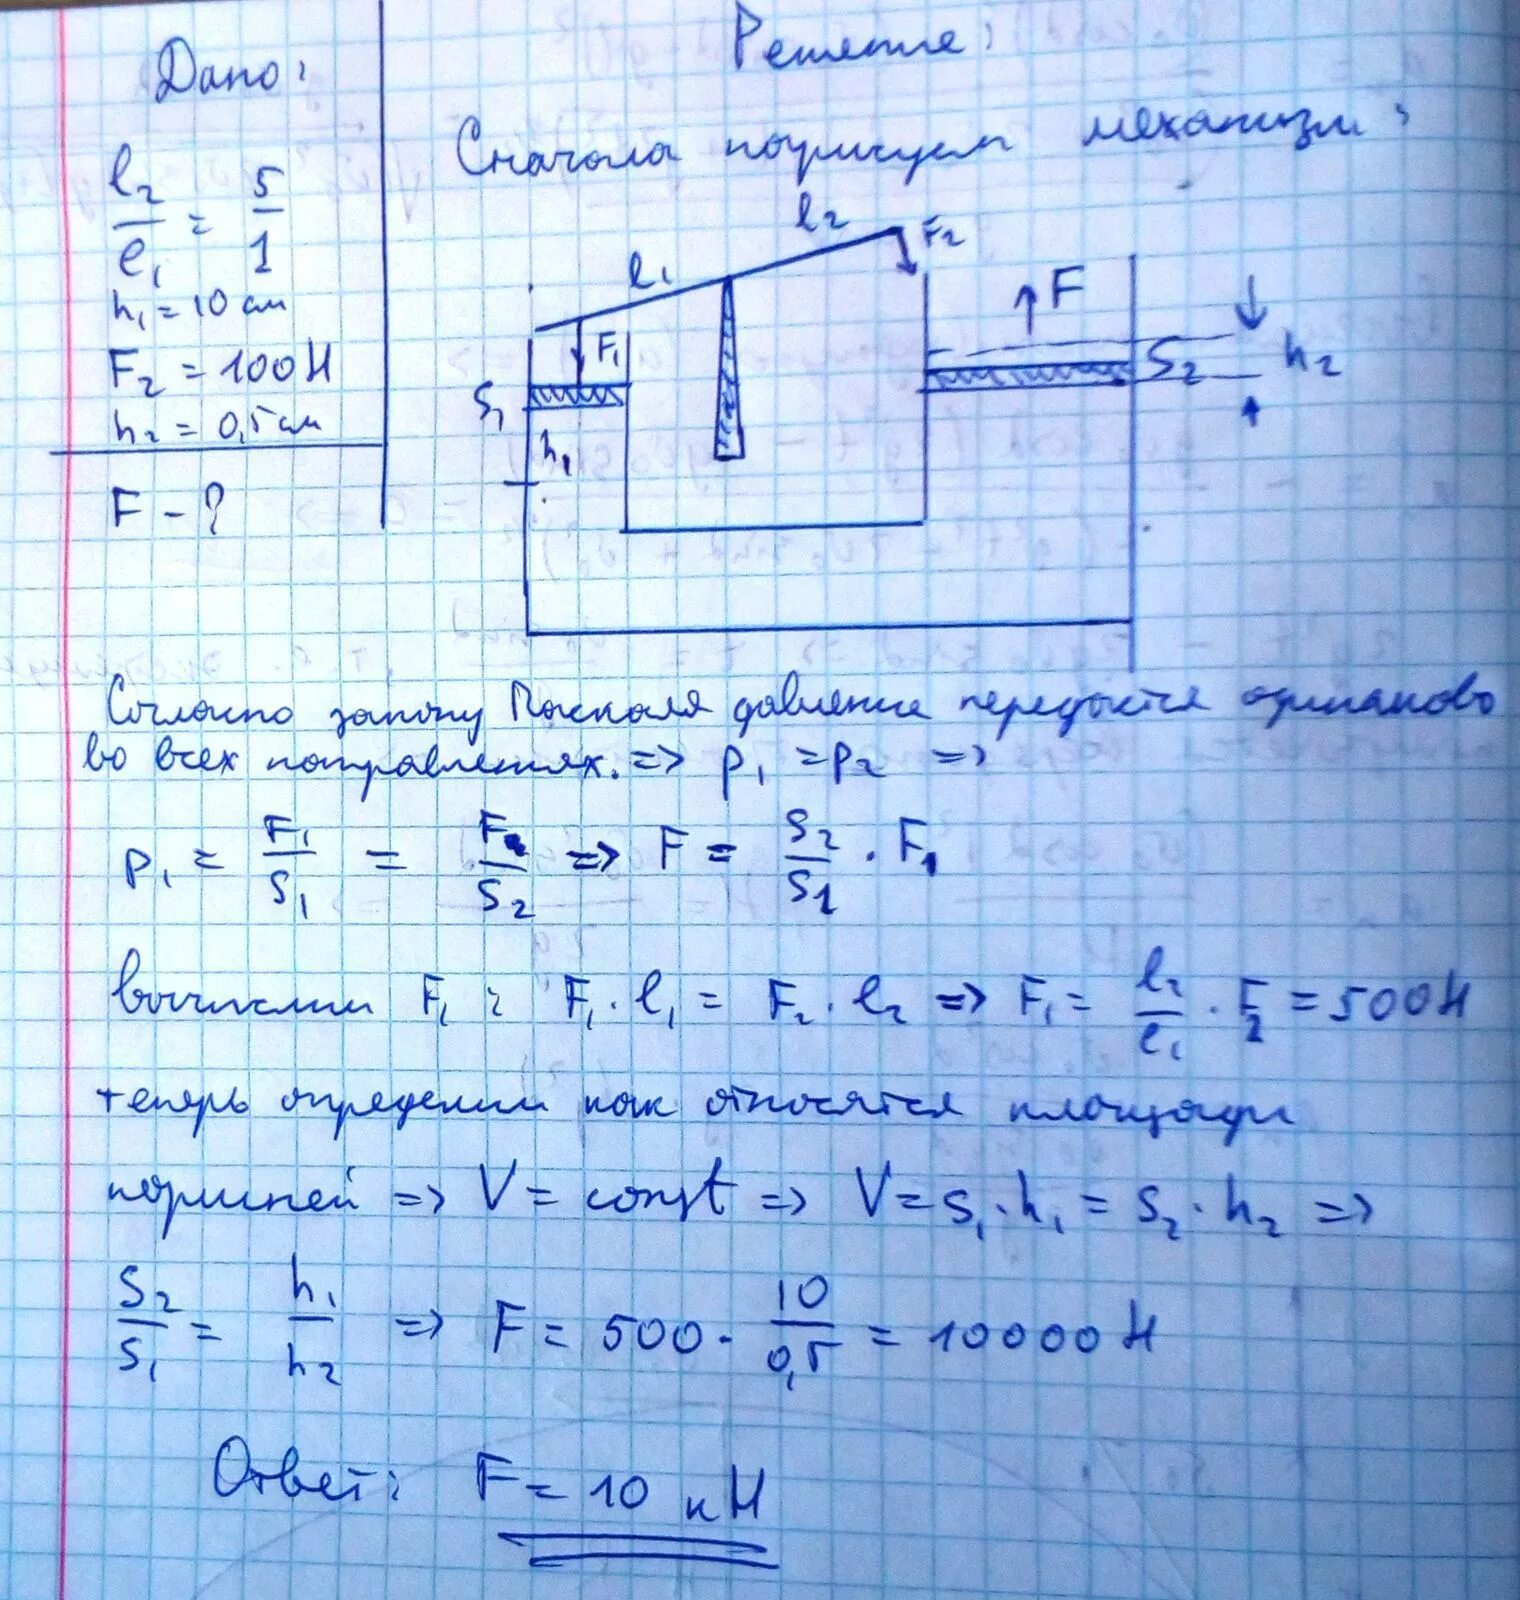 Дано:
Решение:
Сначала нарисуем механизм:
l₂/l₁ = 5/1
h₁ = 10 см
F₂ = 100 Н
h₂ = 0,5 см
F - ?
l₁
l₂
F₂
F₁
F
S₁
S₂
h₁
h₂
Согласно закону Паскаля давление передаётся одинаково
во всех направлениях. => p₁ = p₂ =>
p₁ = F₁/S₁ = F/S₂ => F = S₂/S₁ · F₁
вычислим F₁: F₁ · l₁ = F₂ · l₂ => F₁ = l₂/l₁ · F₂ = 500 Н
теперь определим как относятся площади
поршней => V = const => V = S₁ · h₁ = S₂ · h₂ =>
S₂/S₁ = h₁/h₂ => F = 500 · 10/0,5 = 10000 Н
Ответ: F = 10 кН